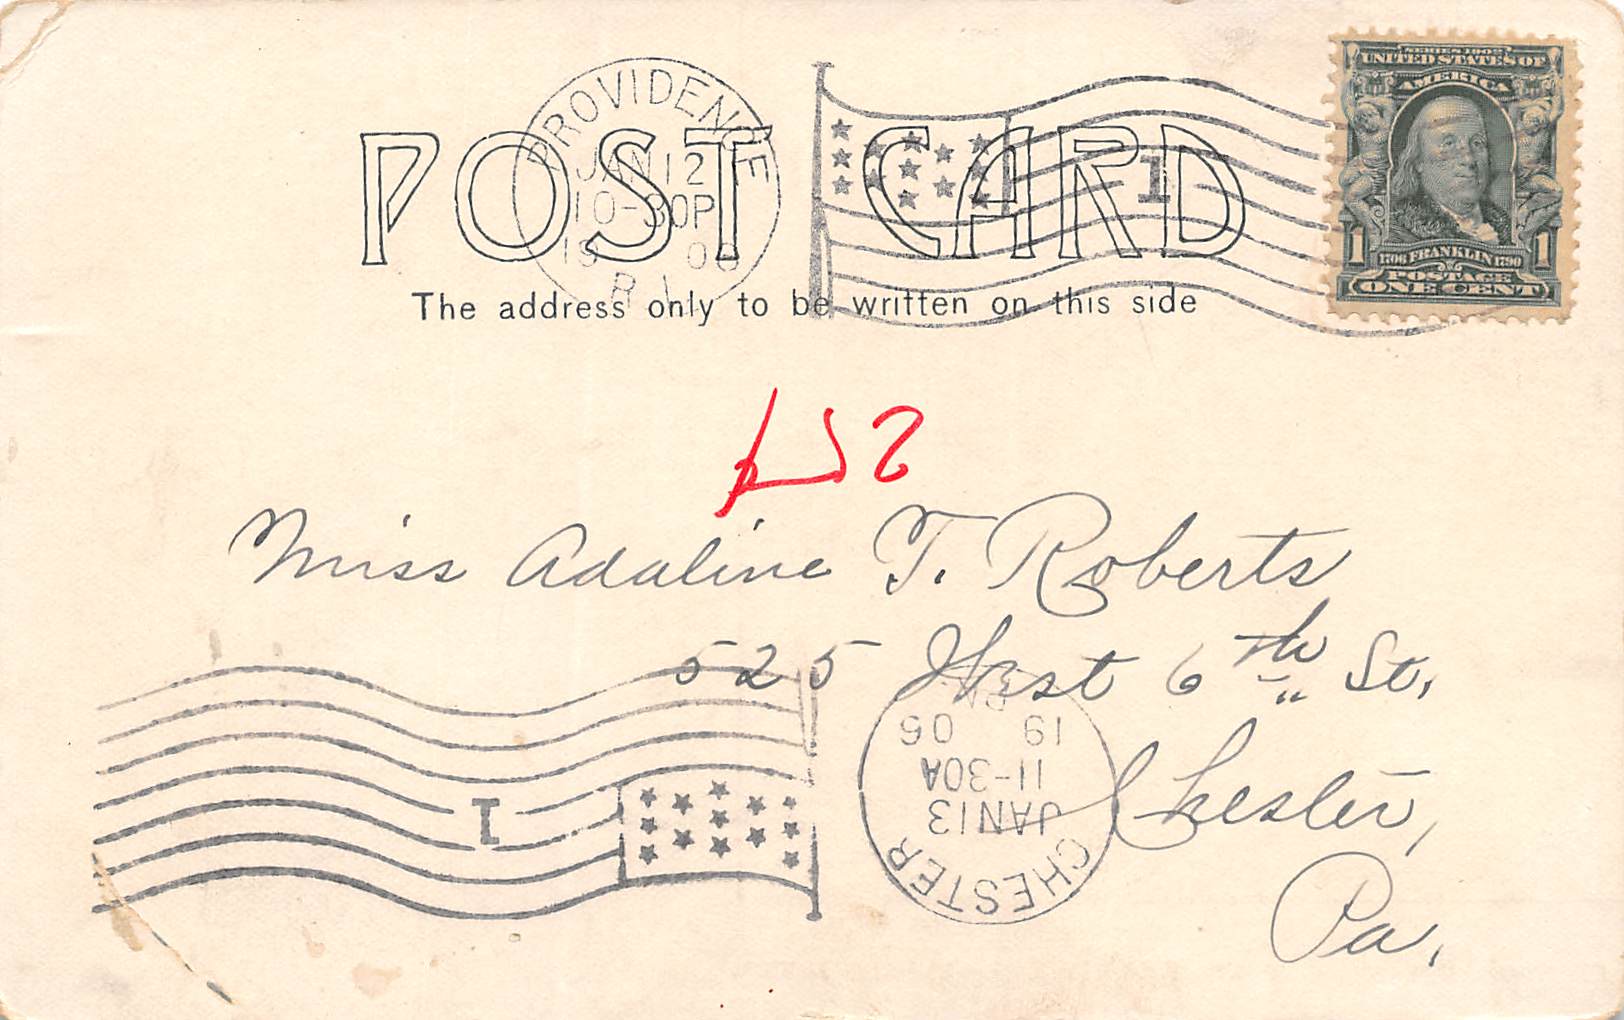 SERIES 1902
UNITED STATES OF
AMERICA
1706 FRANKLIN 1790
1 1
POSTAGE
ONE CENT
PROVIDENCE
JAN 12
10-30P
19 06
R.I.
1
POST CARD
The address only to be written on this side
Miss Adaline T. Roberts
525 West 6th St.,
Chester,
Pa.
CHESTER
JAN 13
11-30A
19 06
PA.
1